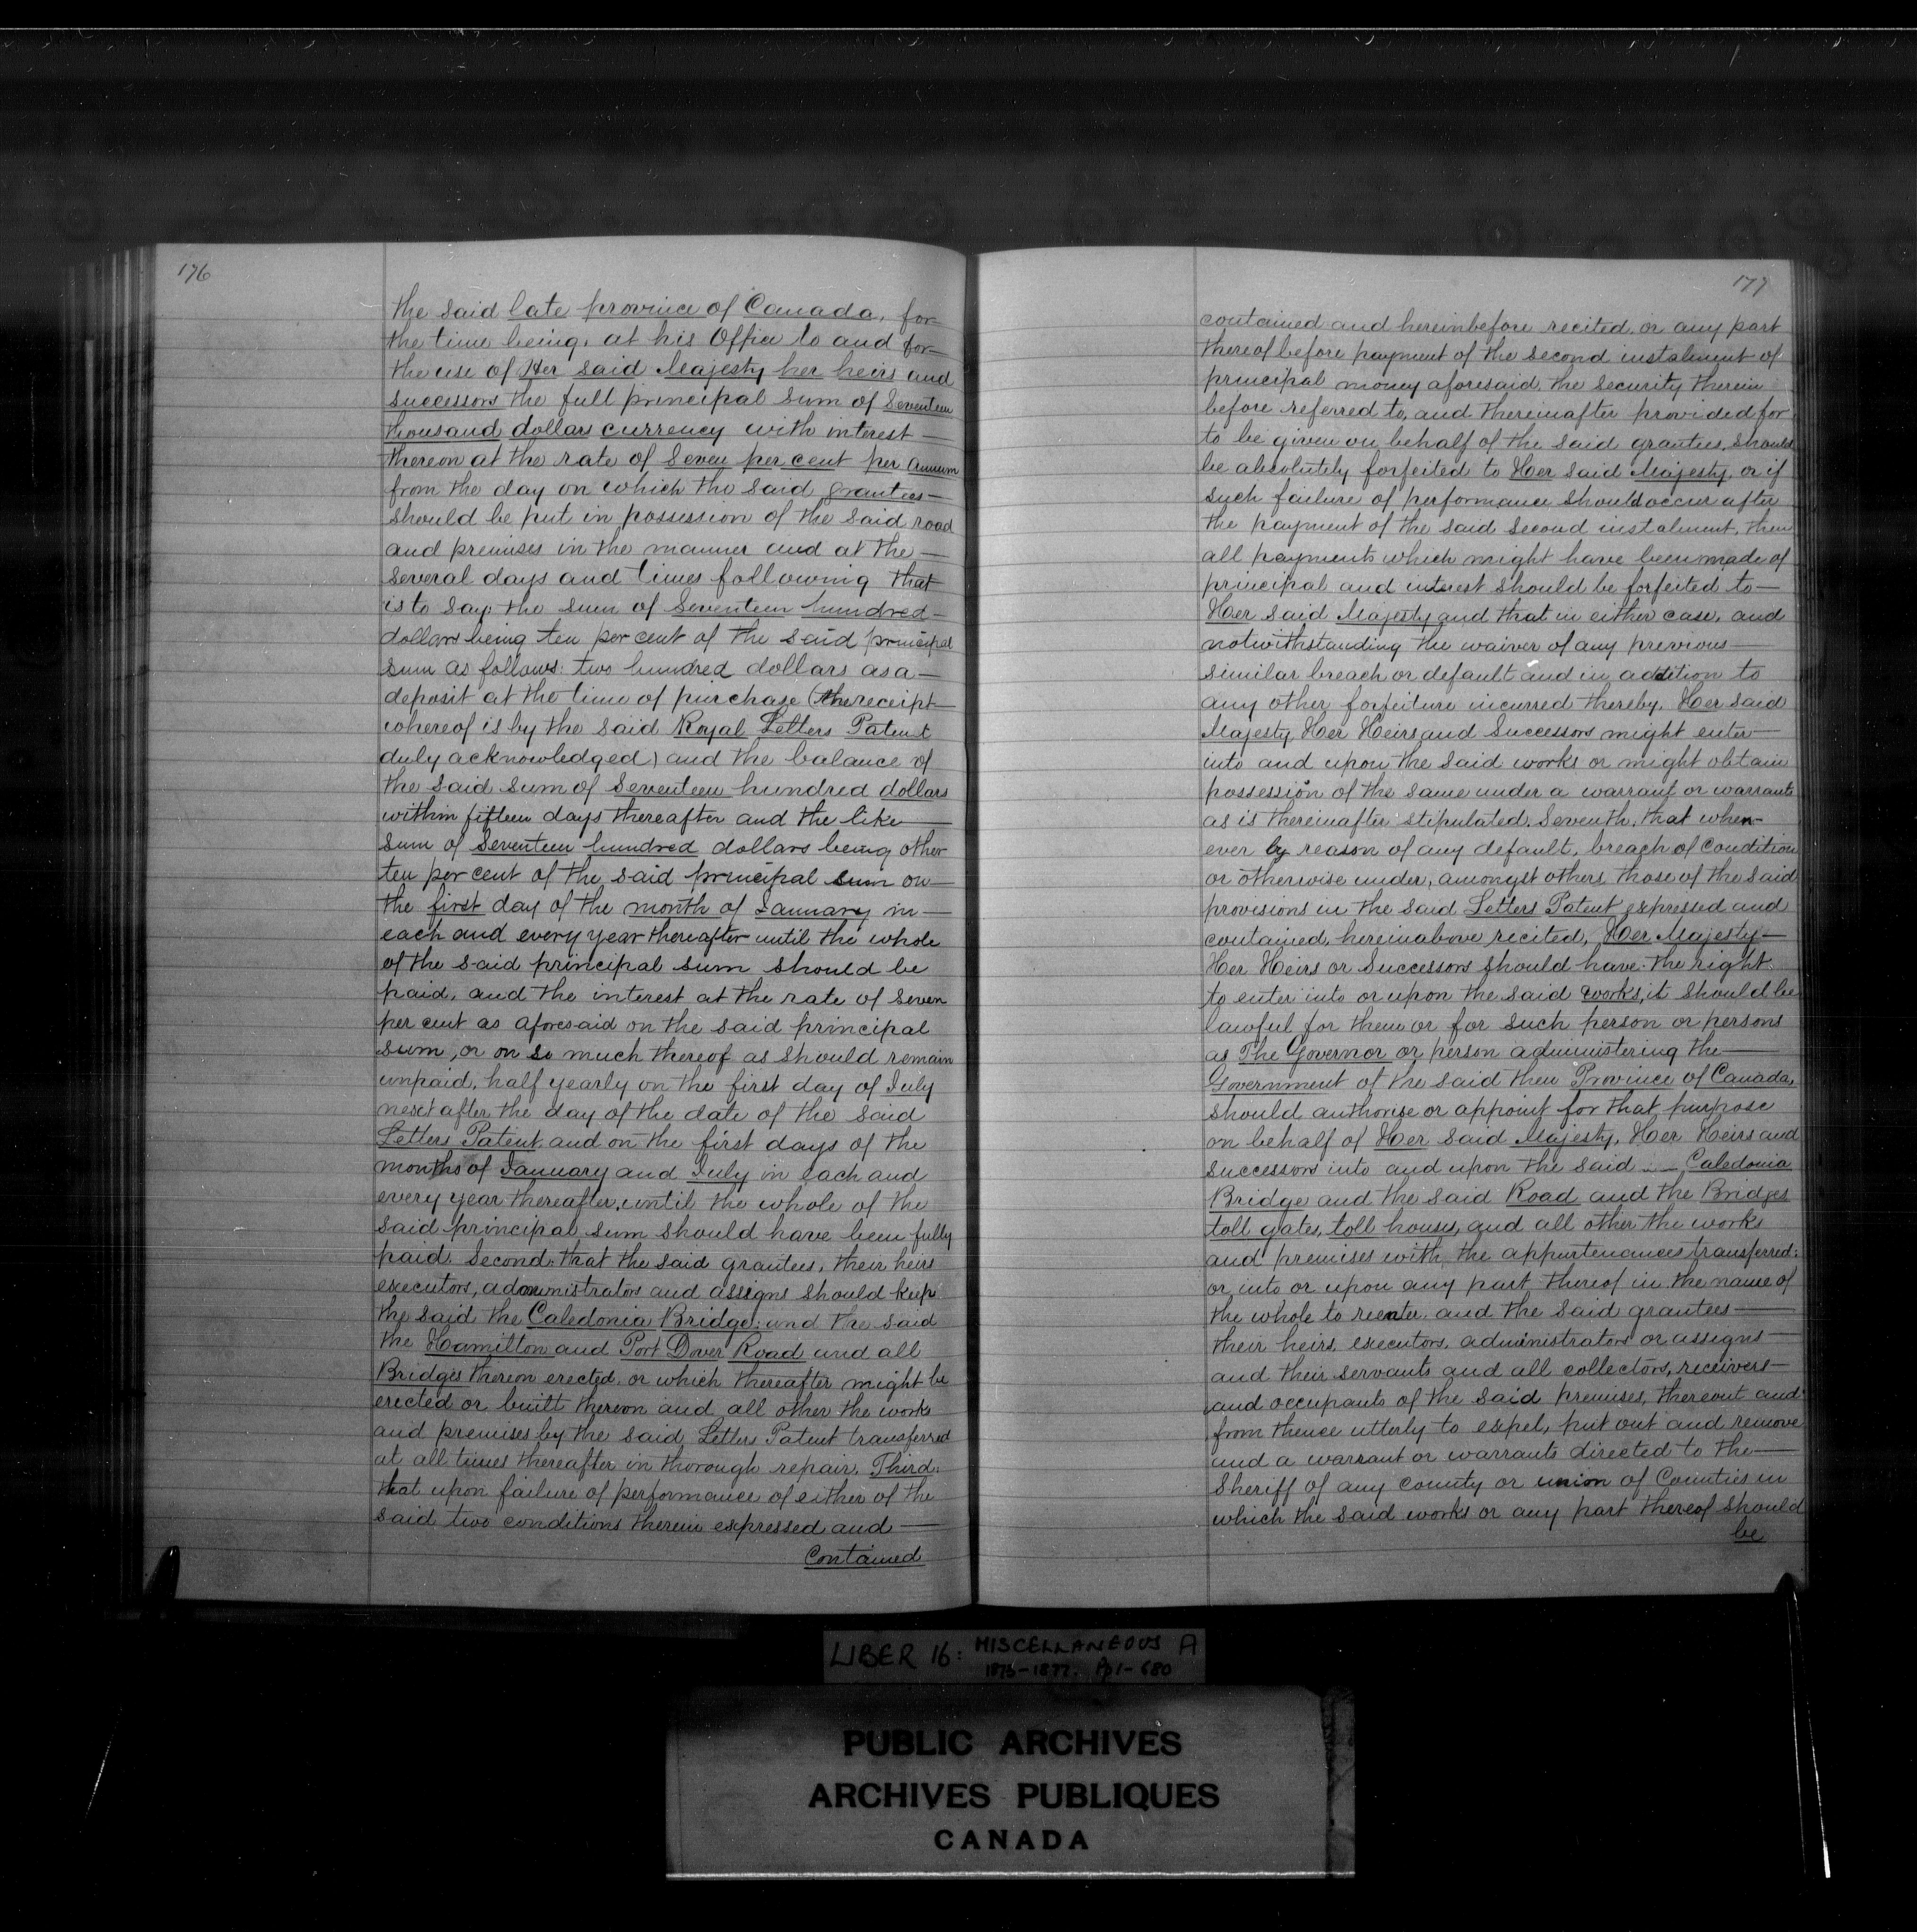 176
the said late province of Canada, for
the time being, at his Office to and for
the use of Her said Majesty her heirs and
successors the full principal sum of Seventeen
thousand dollars currency with interest
thereon at the rate of Seven per cent per annum
from the day on which the said grantees
should be put in possession of the said road
and premises in the manner and at the
several days and times following that
is to say: the sum of Seventeen hundred
dollars being ten per cent of the said principal
sum as follows: two hundred dollars as a
deposit at the time of purchase (the receipt
whereof is by the said Royal Letters Patent
duly acknowledged) and the balance of
the said sum of Seventeen hundred dollars
within fifteen days thereafter and the like
sum of Seventeen hundred dollars being other
ten per cent of the said principal sum on
the first day of the month of January in
each and every year thereafter until the whole
of the said principal sum should be
paid, and the interest at the rate of seven
per cent as aforesaid on the said principal
sum, or on so much thereof as should remain
unpaid, half yearly on the first day of July
next after the day of the date of the said
Letters Patent and on the first days of the
months of January and July in each and
every year thereafter, until the whole of the
said principal sum should have been fully
paid. Second: that the said grantees, their heirs
executors, administrators and assigns should keep
the said the Caledonia Bridge: and the said
the Hamilton and Port Dover Road and all
Bridges thereon erected, or which thereafter might be
erected or built thereon and all other the works
and premises by the said Letters Patent transferred
at all times thereafter in thorough repair. Third:
that upon failure of performance of either of the
said two conditions therein expressed and
Contained
177
contained and hereinbefore recited, or any part
thereof before payment of the second instalment of
principal money aforesaid, the security therein
before referred to, and thereinafter provided for
to be given on behalf of the said grantees, should
be absolutely forfeited to Her said Majesty, or if
such failure of performance should occur after
the payment of the said second instalment, then
all payments which might have been made of
principal and interest should be forfeited to
Her said Majesty and that in either case, and
notwithstanding the waiver of any previous
similar breach or default and in addition to
any other forfeiture incurred thereby, Her said
Majesty Her Heirs and Successors might enter
into and upon the said works or might obtain
possession of the same under a warrant or warrants
as is thereinafter stipulated. Seventh, that when-
ever by reason of any default, breach of condition
or otherwise under, amongst others, those of the said
provisions in the said Letters Patent expressed and
contained, hereinabove recited, Her Majesty
Her Heirs or Successors should have the right
to enter into or upon the said works, it should be
lawful for them or for such person or persons
as The Governor or person administering the
Government of the said then Province of Canada,
should authorise or appoint for that purpose
on behalf of Her said Majesty, Her Heirs and
successors into and upon the said Caledonia
Bridge and the said Road and the Bridges
toll gates, toll houses, and all other the works
and premises with the appurtenances transferred:
or into or upon any part thereof in the name of
the whole to reenter and the said grantees
their heirs, executors, administrators or assigns
and their servants and all collectors, receivers
and occupants of the said premises, thereout and
from thence utterly to expel, put out and remove
and a warrant or warrants directed to the
Sheriff of any county or union of Counties in
which the said works or any part thereof should
be
LIBER 16: MISCELLANEOUS A
1875-1877. Pp 1-680
PUBLIC ARCHIVES
ARCHIVES PUBLIQUES
CANADA